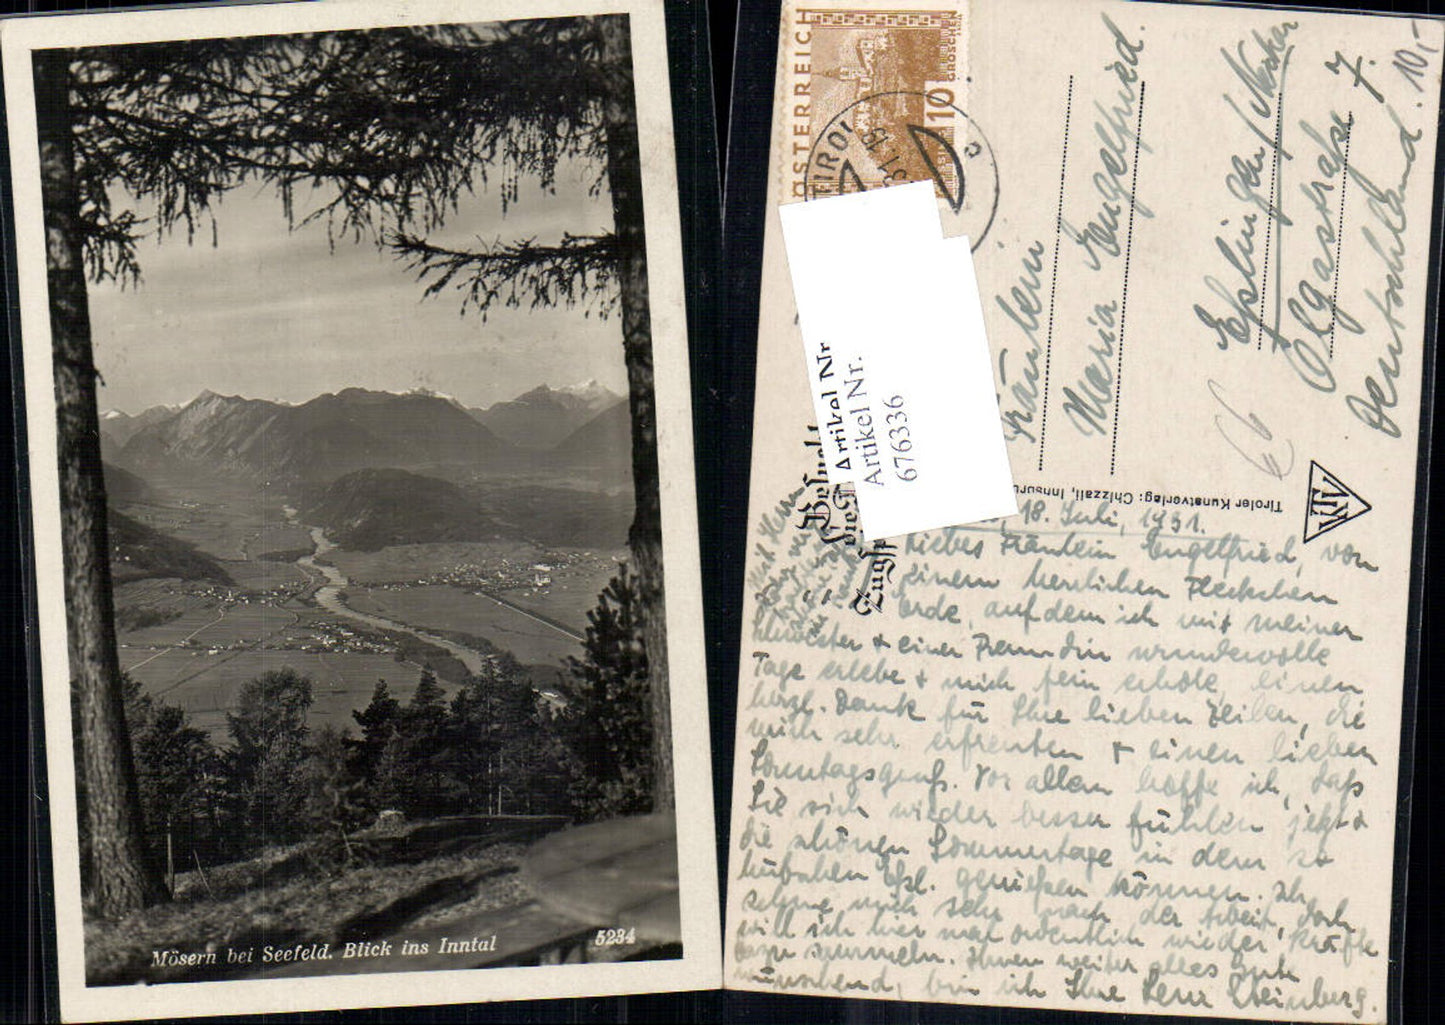 Mösern bei Seefeld. Blick ins Inntal
5234
ÖSTERREICH
10
GROSCHEN
TIROL
Artikel Nr
Artikel Nr.
676336
Besucht
die
Tiroler Kunstverlag: Chizzali, Innsbru
KTV
Fräulein
Maria Engelfried.
Eßlingen/Neckar
Olgastraße 7.
Deutschland.
10,-
66
18. Juli, 1931.
Liebes Fräulein Engelfried, von
einem herrlichen Fleckchen
Erde, auf dem ich mit meiner
Schwester + einer Freundin wundervolle
Tage erlebe + mich fein erhole, einen
herzl. Dank für Ihre lieben Zeilen, die
mich sehr erfreuten + einen lieben
Sonntagsgruß. Vor allem hoffe ich, daß
Sie sich wieder besser fühlen jetzt
die schönen Sommertage in dem so
hübschen Eßl. genießen können. Ich
sehne mich sehr nach der Arbeit, doch
will ich hier mal ordentlich wieder Kräfte
dazu sammeln. Ihnen weiter alles Gute
wünschend, bin ich Ihre Lenz Steinberg.